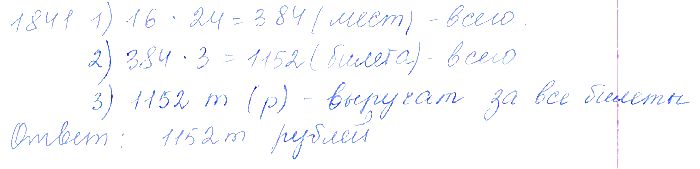 1841 1) 16 · 24 = 384 (мест) - всего.
2) 384 · 3 = 1152 (билета) - всего
3) 1152 m (р) - выручат за все билеты
Ответ: 1152m рублей